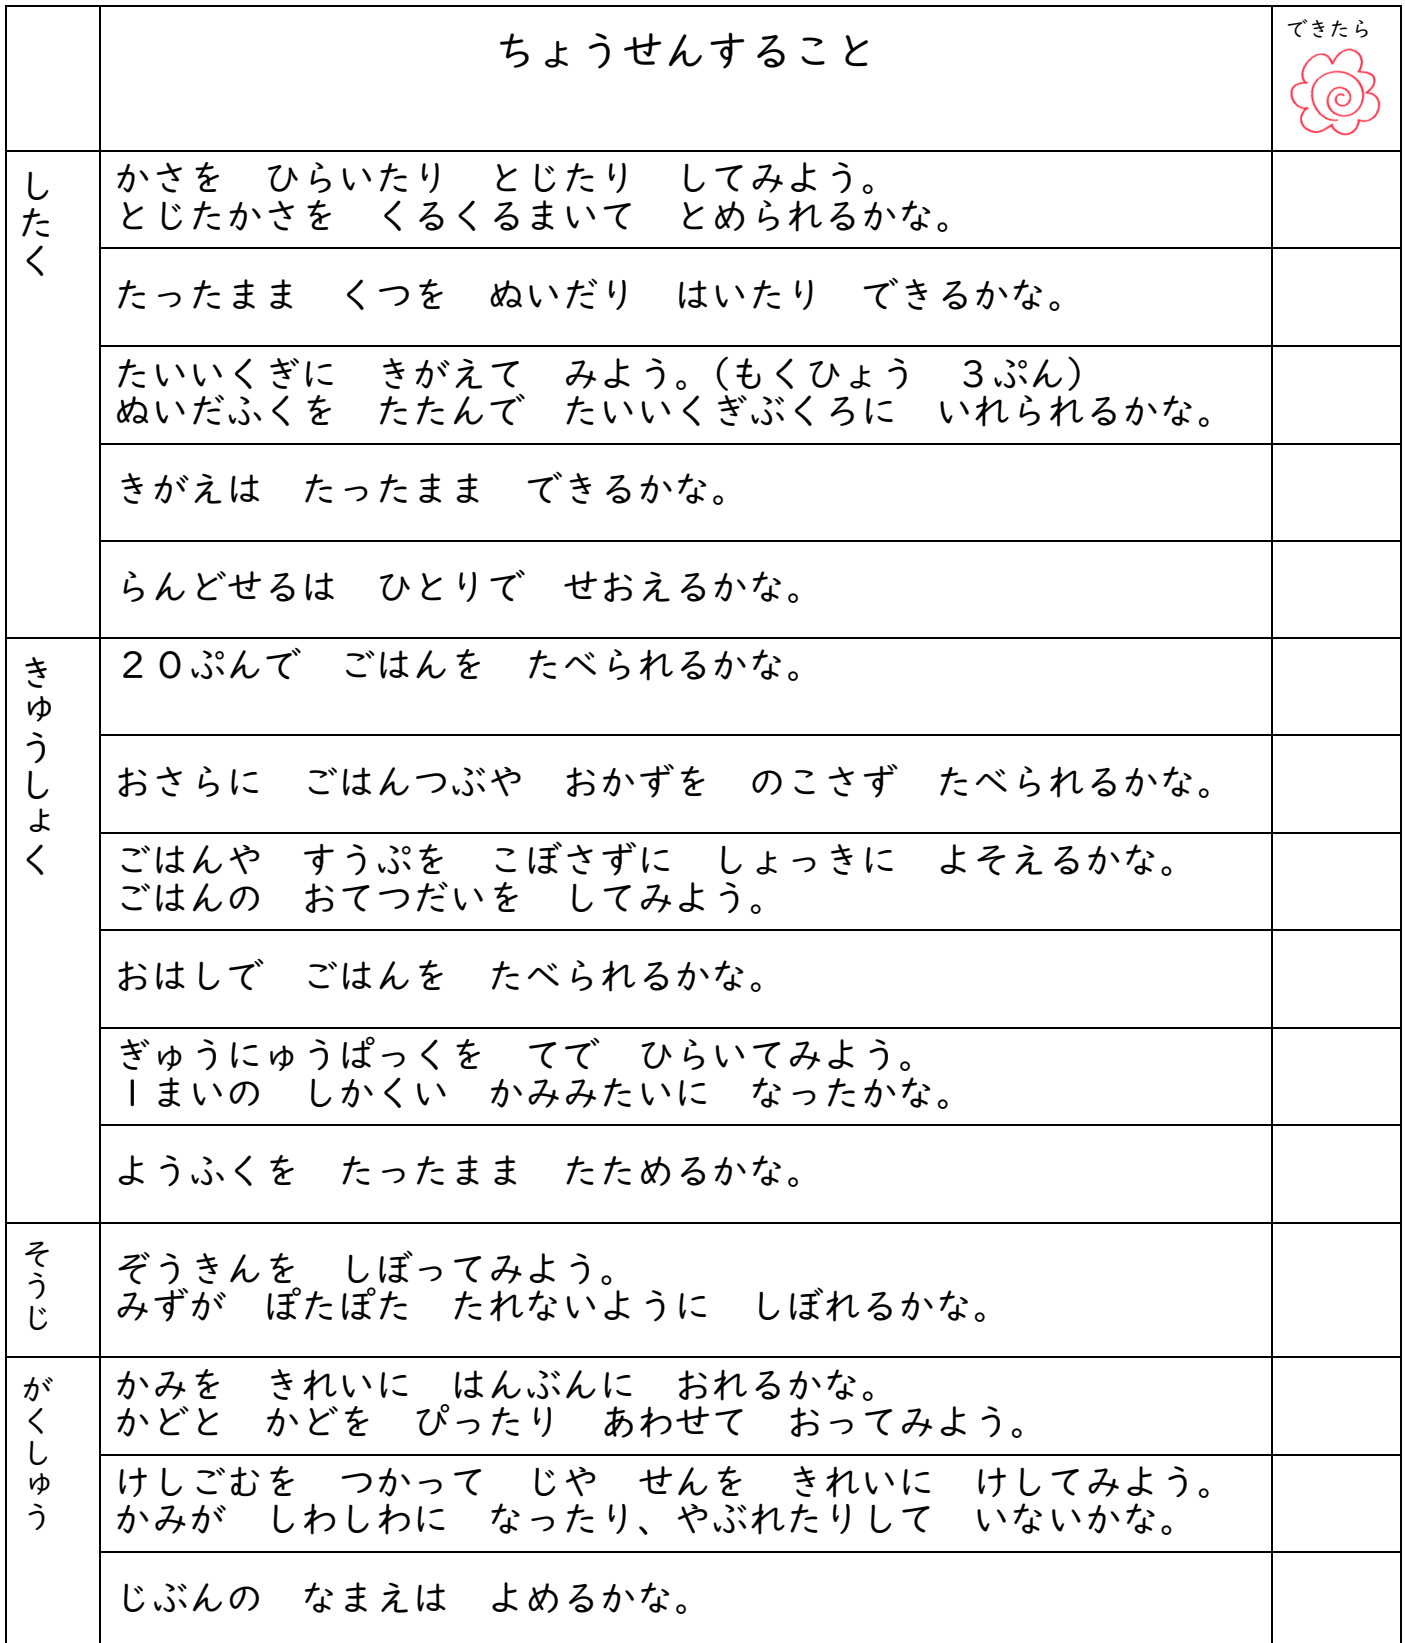 ちょうせんすること
できたら
したく
かさを　ひらいたり　とじたり　してみよう。
とじたかさを　くるくるまいて　とめられるかな。
たったまま　くつを　ぬいだり　はいたり　できるかな。
たいいくぎに　きがえて　みよう。（もくひょう　３ぷん）
ぬいだふくを　たたんで　たいいくぎぶくろに　いれられるかな。
きがえは　たったまま　できるかな。
らんどせるは　ひとりで　せおえるかな。
きゅうしょく
２０ぷんで　ごはんを　たべられるかな。
おさらに　ごはんつぶや　おかずを　のこさず　たべられるかな。
ごはんや　すうぷを　こぼさずに　しょっきに　よそえるかな。
ごはんの　おてつだいを　してみよう。
おはしで　ごはんを　たべられるかな。
ぎゅうにゅうぱっくを　てで　ひらいてみよう。
１まいの　しかくい　かみみたいに　なったかな。
ようふくを　たったまま　たためるかな。
そうじ
ぞうきんを　しぼってみよう。
みずが　ぽたぽた　たれないように　しぼれるかな。
がくしゅう
かみを　きれいに　はんぶんに　おれるかな。
かどと　かどを　ぴったり　あわせて　おってみよう。
けしごむを　つかって　じや　せんを　きれいに　けしてみよう。
かみが　しわしわに　なったり、やぶれたりして　いないかな。
じぶんの　なまえは　よめるかな。